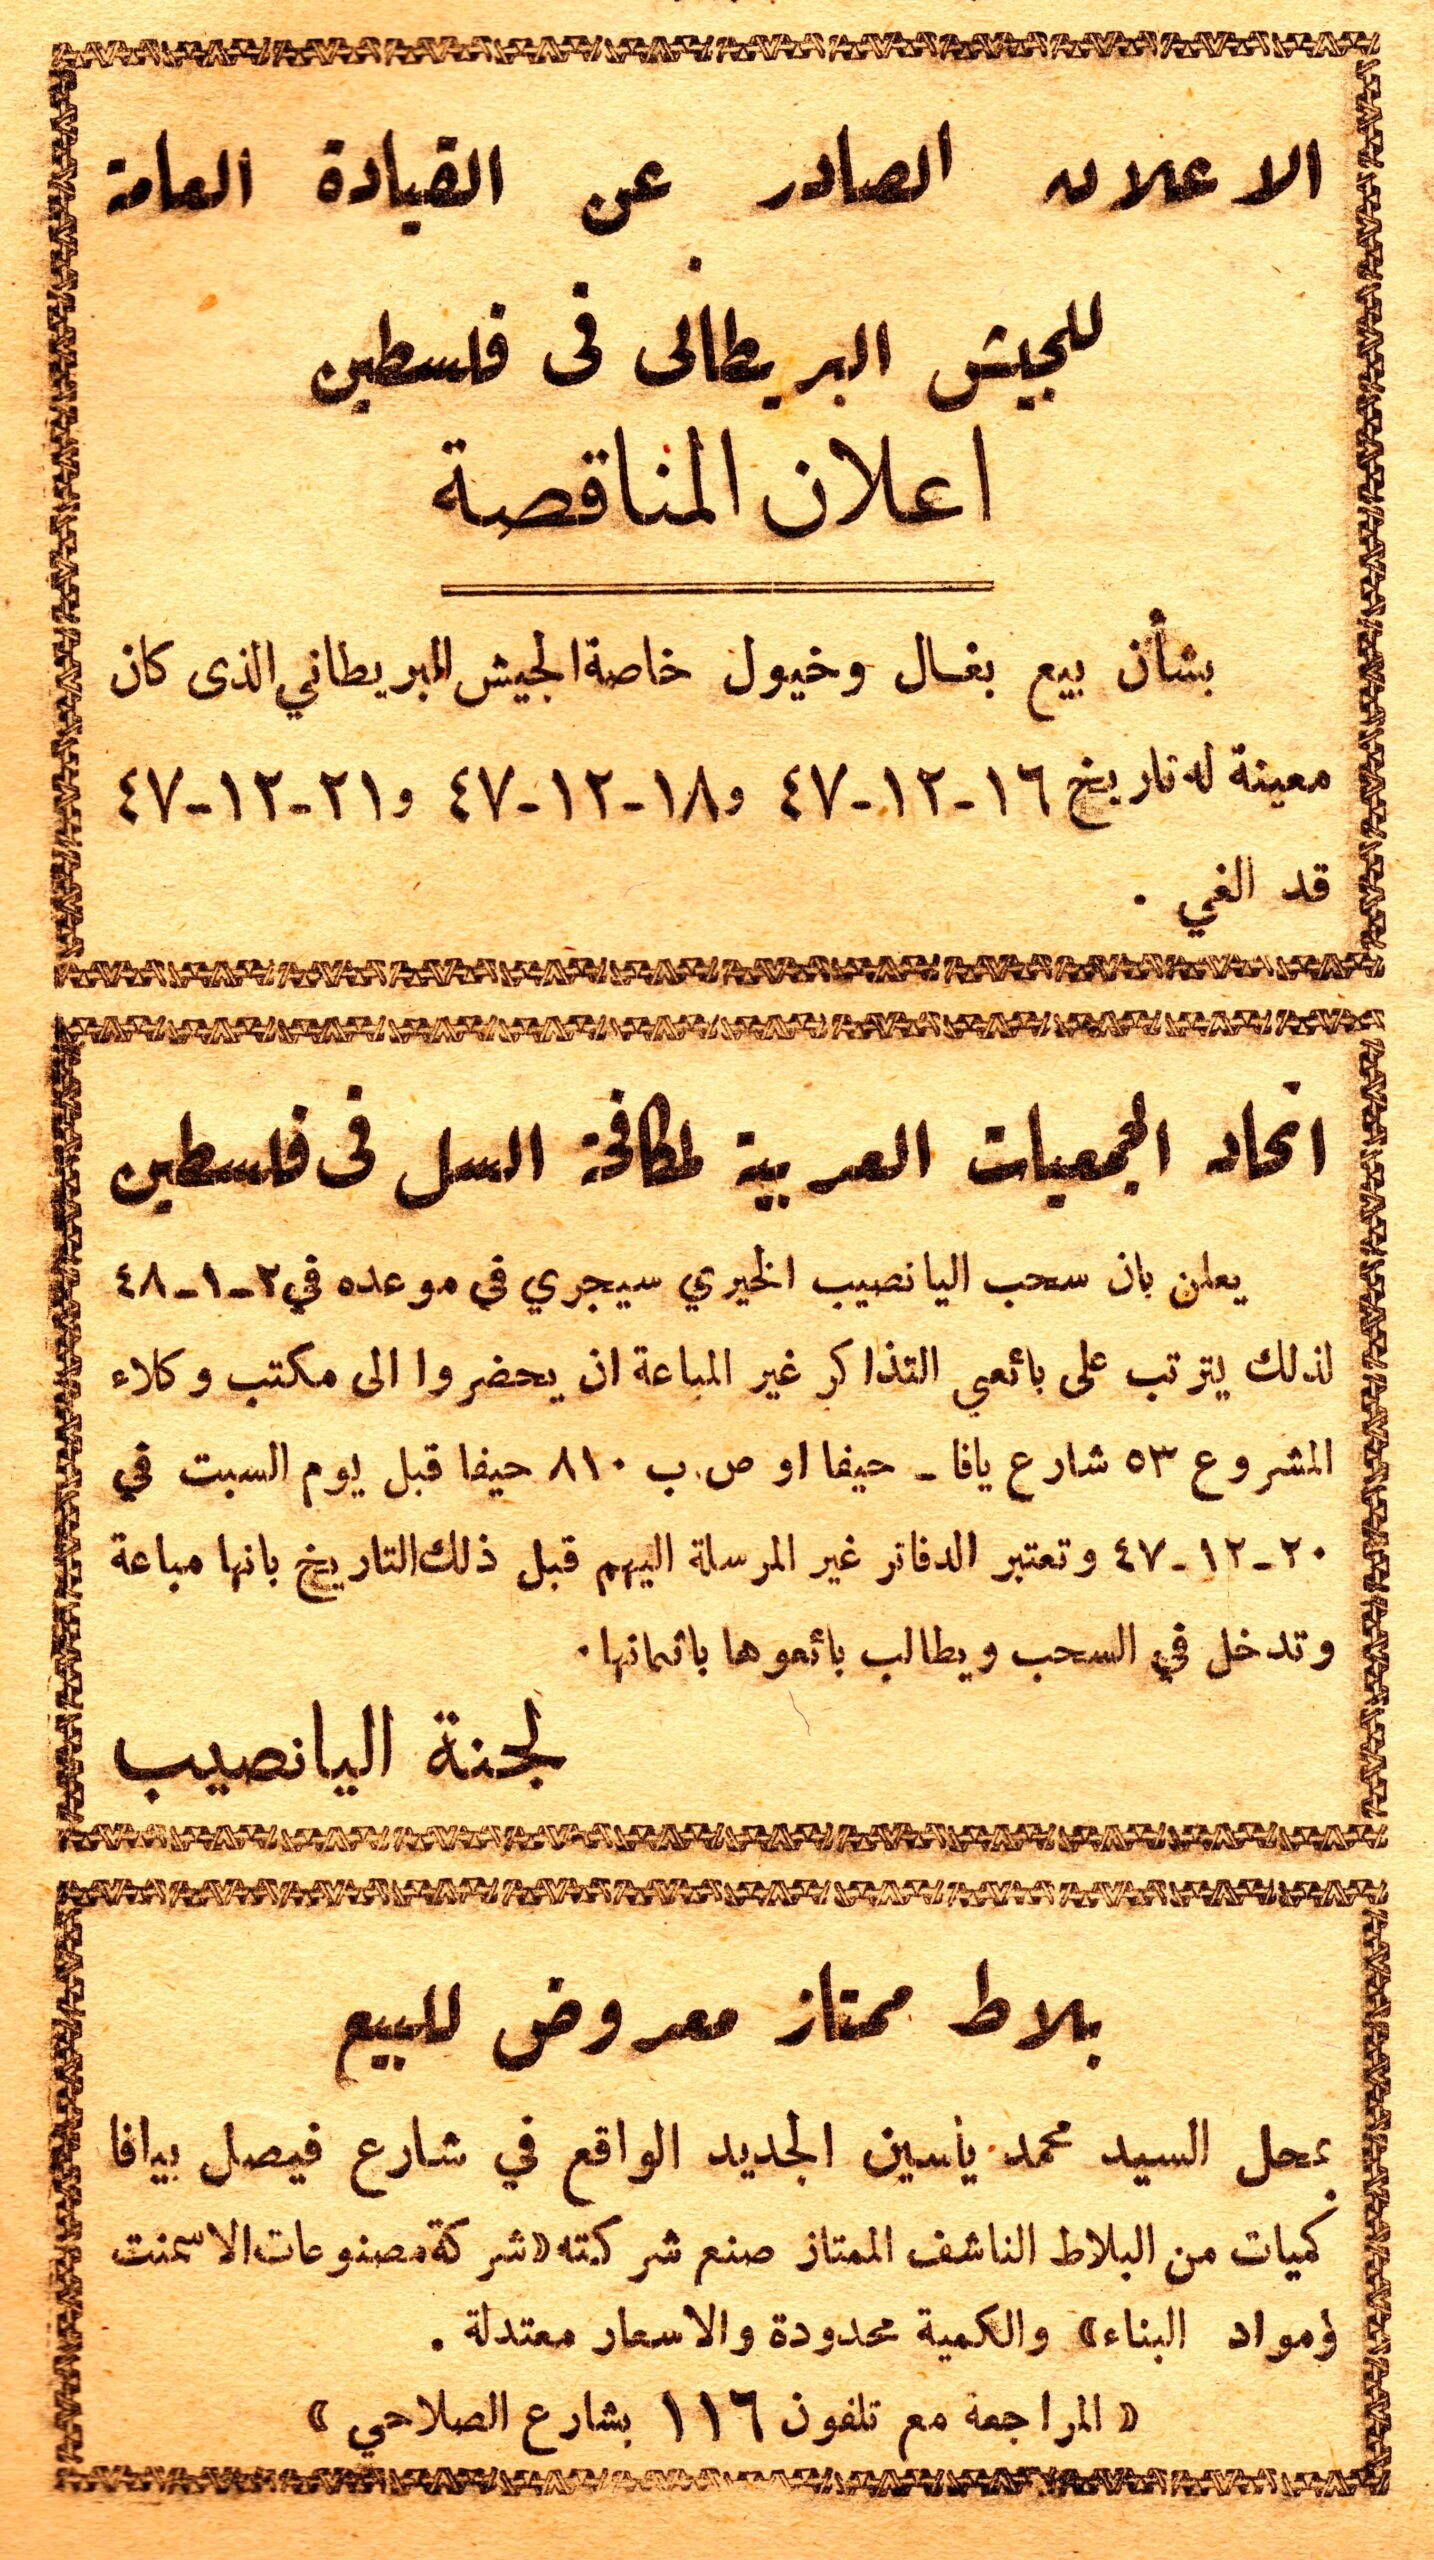 الاعلان الصادر عن القيادة العامة
للجيش البريطانى فى فلسطين
اعلان المناقصة
بشأن بيع بغال وخيول خاصة الجيش البريطاني الذى كان
معينة له تاريخ ١٦-١٢-٤٧ و١٨-١٢-٤٧ و٢١-١٢-٤٧
قد الغي .
اتحاد الجمعيات العربية لمكافحة السل فى فلسطين
يعلن بان سحب اليانصيب الخيري سيجري في موعده في ٢-١-٤٨
لذلك يترتب على بائعي التذاكر غير المباعة ان يحضروا الى مكتب وكلاء
المشروع ٥٣ شارع يافا - حيفا او ص.ب ٨١٠ حيفا قبل يوم السبت في
٢٠-١٢-٤٧ وتعتبر الدفاتر غير المرسلة اليهم قبل ذلك التاريخ بانها مباعة
وتدخل في السحب ويطالب بائعوها باثمانها.
لجنة اليانصيب
بلاط ممتاز معروض للبيع
بمحل السيد محمد ياسين الجديد الواقع في شارع فيصل بيافا
كميات من البلاط الناشف الممتاز صنع شركته «شركة مصنوعات الاسمنت
ومواد البناء» والكمية محدودة والاسعار معتدلة .
« المراجعة مع تلفون ١١٦ بشارع الصلاحي »